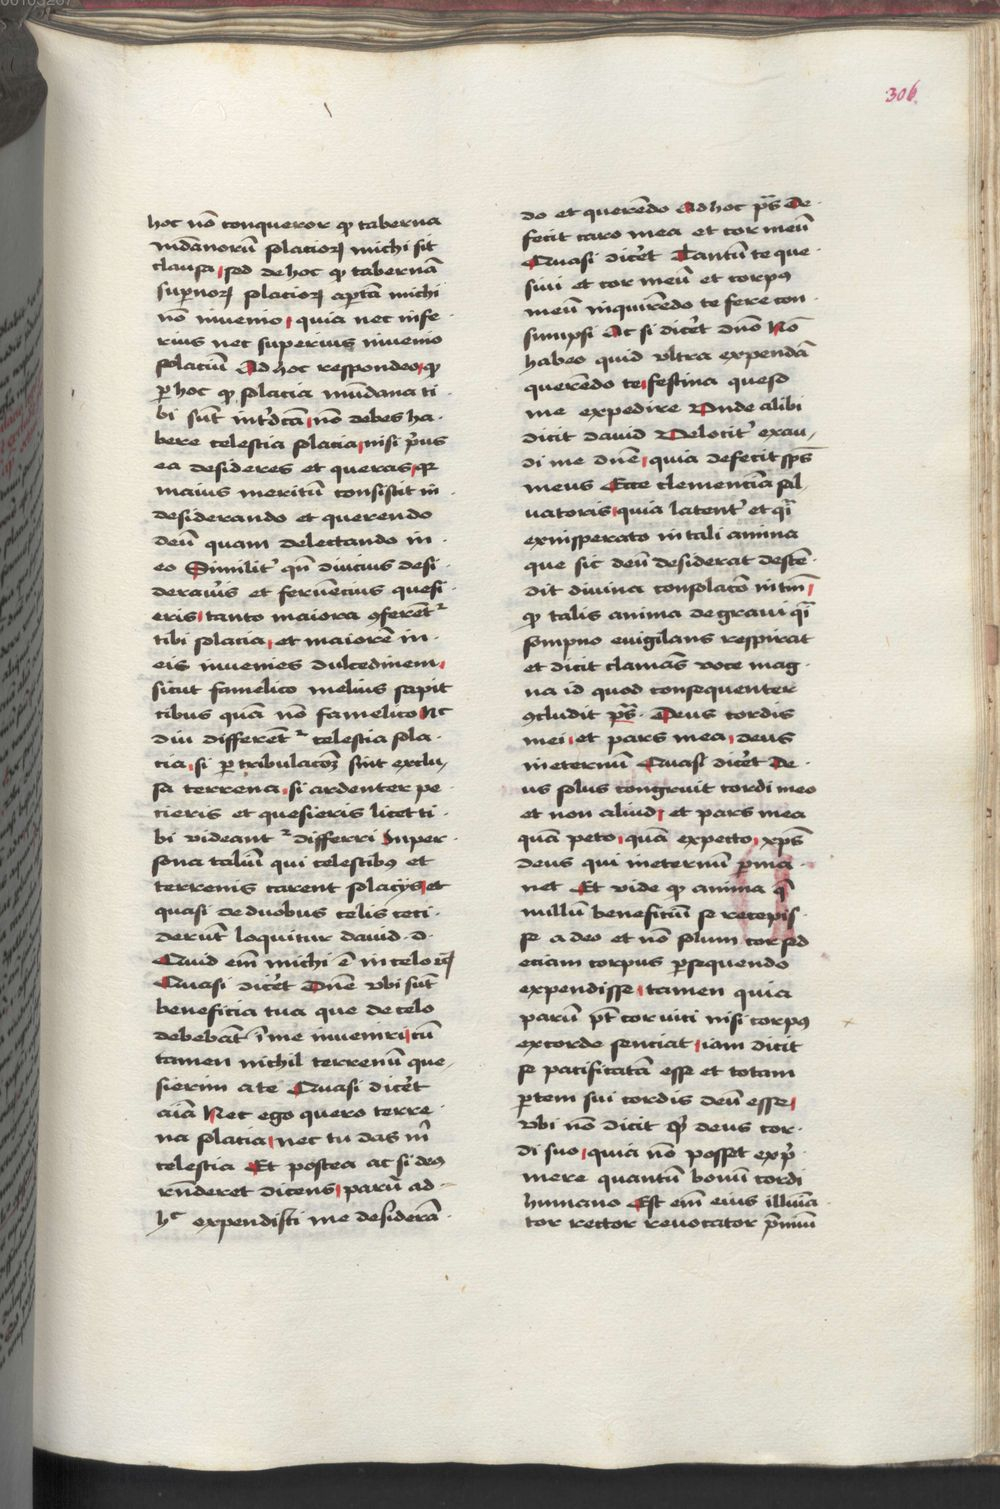 306
hoc nō conqueror ꝙ taberna
mūdanorū solacioꝝ michi sit
clausa sed de hoc ꝙ tabernā
suꝑnoꝝ solacioꝝ aptā michi
nō invenio quia nec infe
rius nec superius invenio
solaciū Ad hoc respondeo ꝙ
ꝑ hoc ꝙ solacia mūdana ti
bi sūt int̓dcā nō debes ha
bere celestia solacia nisi pͥus
ea desideres et queras qꝛ
maius meritū consistit in
desiderando et querendo
deū quam delectando in
eo Similit̓ qn̄ diucius desi
derav̓is et feruēcius quesi
eris tanto maiora ꝯferent᷑
tibi solacia et maiorē in
eis invenies dulcedinem
sicut famelico melius sapit
cibus quā nō famelico Nc
diu different᷑ celestia sola
cia si ꝑ tribulacōꝫ sint exclu
sa terrena si ardenter pe
cieris et quesieris licet ti
bi videant᷑ differri In per
sona taliū qui celestibꝰ et
terrenis carent solacijs et
quasi de duobus celis ceci
derūt loquitur david d
Quid em̄ michi ē in celo ⁊cͣ
Quasi dic̓et Dn̄e vbi sūt
beneficia tua que de celo
debebāt ī me inveniri cū
tamen nichil terrenū que
sierim a te Quasi dic̓et
aīa Nec ego quero terre
na solacia nec tu das mͥ
celestia Et postea ac si deꝰ
rn̄deret dicens parū ad
hͨ expendisti me desiderā
do et querēdo Ad hoc pͣs De
fecit caro mea et cor meū
Quasi dic̓et Tantū te que
sivi et cor meū et corpꝰ
meū inquirēdo te fere con
sumpsi Ac si dic̓et dn̄o Nō
habeo quid vltra expendā
querēdo te festina queso
me expedire Vnde alibi
dicit david Velocit̓ exau
di me dn̄e quia defecit sp̄s
meus Ecce clemencia sal
uatoris quia latent̓ et qͣi
ex insperato in tali anima
que sic deū desiderat descē
dit divina consolacō in tm̄
ꝙ talis anima de gravi qͣi
sompno evigilans respirat
et dicit clamās voce mag
na id quod consequenter
ꝯcludit pͣs Deus cordis
mei et pars mea deus
in eternū Quasi dic̓et De
us solus congruit cordi meo
et non aliud et pars mea
quā peto quā expecto xp̄s
deus qui in eternū ꝑma
net Et vide ꝙ anima q̄
nullū beneficiū se recepis
se a deo et nō solum cor sed
eciam corpus ꝑsequendo
expendisse tamen quia
parū pt̄ cor uiti nisi corpꝰ
ex corde senciat iam dicit
se pacificatā esse et totam
ꝑtem sui cordis deū esse
vbi nō dicit qͥ deus cor
di suo quia nō posset expͥ
mere quantū bonū cordi
humano Est em̄ eius illuīa
tor rector revocator p̄miū